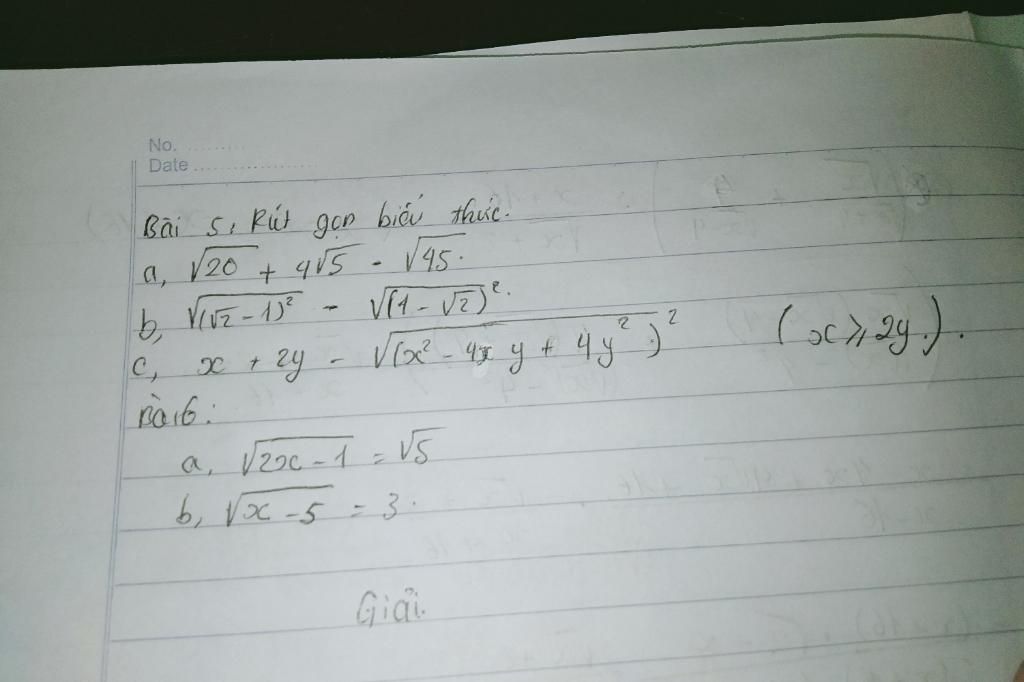 No. .........
Date ....................
Bài 5, Rút gọn biểu thức.
a, √20 + 4√5 - √45.
b, √(√2 - 1)² - √(1 - √2)².
c, x + 2y - √(x² - 4xy + 4y²)² (x ≥ 2y).
Bài 6:
a, √2x - 1 = √5
b, √x - 5 = 3.
Giải.